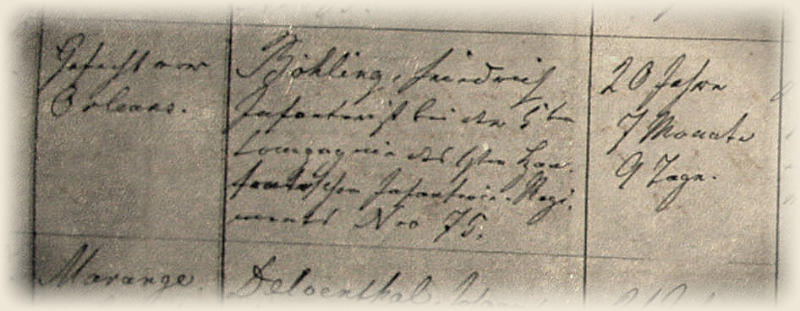 Gefecht vor
Orleans.
Böhling, Friedrich
Infanterist bei der 5ten
Compagnie des 1ten Han-
seatischen Infanterie-Regi-
ments Nro 75.
20 Jahre
7 Monate
9 Tage.
Marange.
Deloenthal,